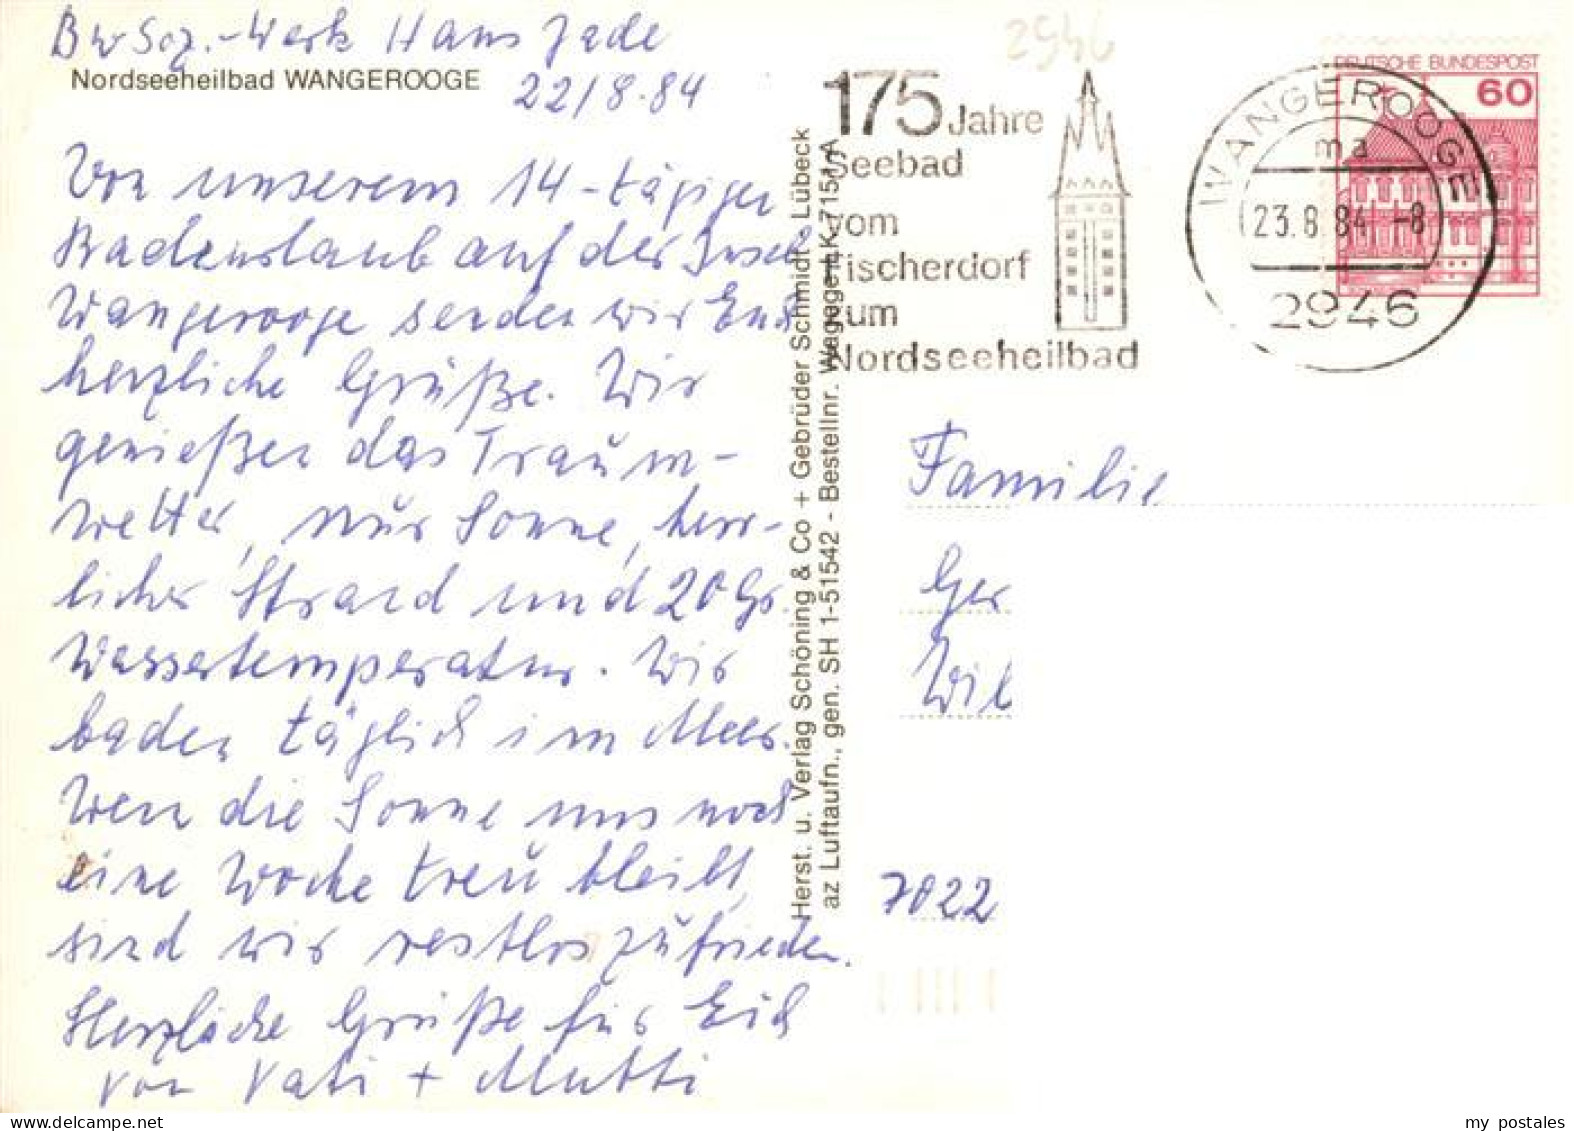 Bw Soz.-Werk Haus Jade
Nordseeheilbad WANGEROOGE
22/8.84
Von unserem 14-tägigen
Badeurlaub auf der Insel
Wangerooge senden wir Euch
herzliche Grüße. Wir
genießen das Traum-
wetter, nur Sonne, herr-
licher Strand und 20 Gr
Wassertemperatur. Wir
baden täglich im Meer.
Wenn die Sonne uns noch
eine Woche treu bleibt,
sind wir restlos zufrieden.
Herzliche Grüße für Eich
von Vati + Mutti
Herst. u. Verlag Schöning & Co + Gebrüder Schmidt Lübeck
az Luftaufn., gen. SH 1-51542 - Bestellnr. Wagege K 7151 A
2946
175 Jahre
Seebad
vom
Fischerdorf
zum
Nordseeheilbad
WANGEROOGE
ma
23.8.84-8
2946
DEUTSCHE BUNDESPOST
60
Familie
Ger
Wil
7022
delcampe.net
my postales